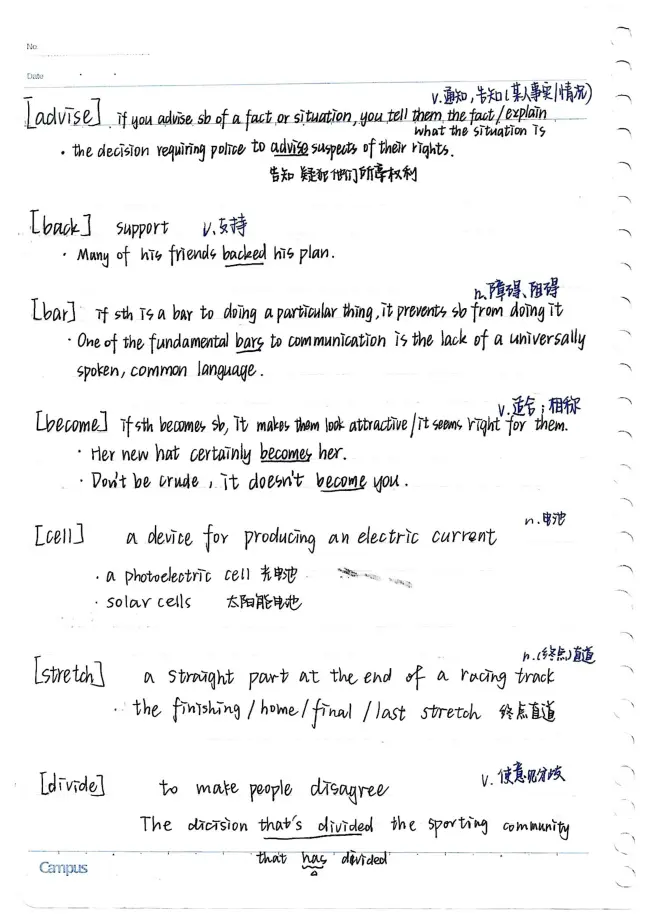 No
Date
v.通知,告知(某人事实/情况)
[advise] if you advise sb of a fact or situation, you tell them the fact/explain
what the situation is
· the decision requiring police to advise suspects of their rights.
告知 疑犯他们所享权利
[back] support v.支持
· Many of his friends backed his plan.
n.障碍、阻碍
[bar] if sth is a bar to doing a particular thing, it prevents sb from doing it
· One of the fundamental bars to communication is the lack of a universally
spoken, common language.
v.适合;相称
[become] if sth becomes sb, it makes them look attractive/it seems right for them.
· Her new hat certainly becomes her.
· Don't be crude, it doesn't become you.
n.电池
[cell] a device for producing an electric current
· a photoelectric cell 光电池
· solar cells 太阳能电池
n.(终点)直道
[stretch] a straight part at the end of a racing track
· the finishing/home/final/last stretch 终点直道
v.使意见分歧
[divide] to make people disagree
The dicision that's divided the sporting community
that has divided
Campus